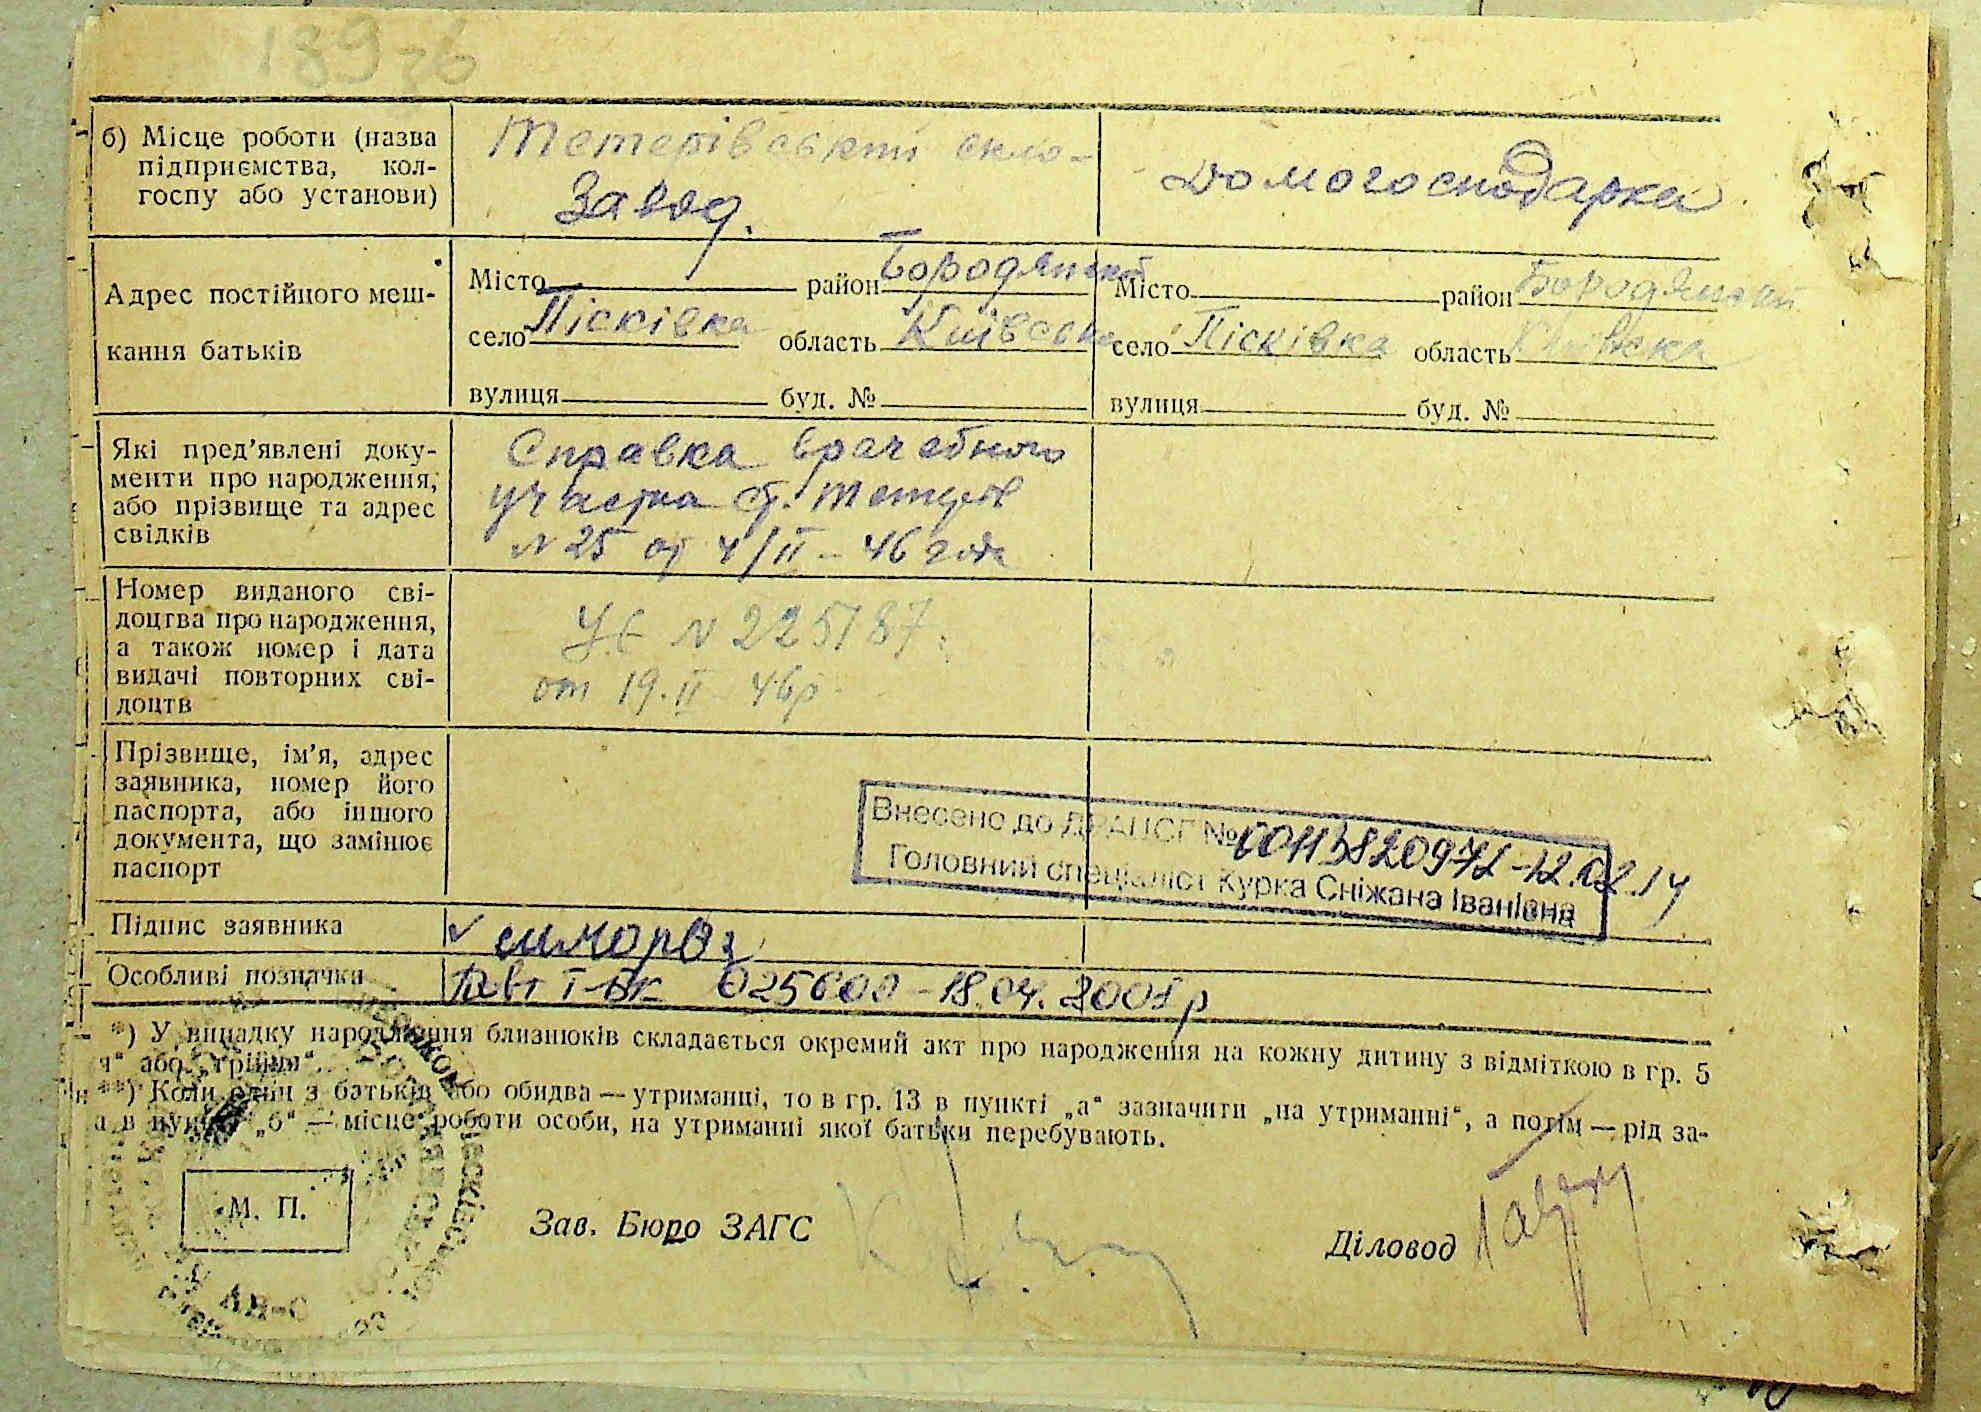 139 зв
б) Місце роботи (назва
підприємства, кол-
госпу або установи)
Тетерівський скло-
завод.
Домогосподарка
Адрес постійного меш-
кання батьків
Місто район Бородянский
село Пісківка область Київська
вулиця буд. №
Місто район Бородянский
село Пісківка область Київська
вулиця буд. №
Які пред'явлені доку-
менти про народження,
або прізвище та адрес
свідків
Справка врачебного
участка ст. Тетерев
N 25 от 4/II - 46 года
Номер виданого сві-
доцтва про народження,
а також номер і дата
видачі повторних сві-
доцтв
N 225187
от 19.II 46р.
Прізвище, ім'я, адрес
заявника, номер його
паспорта, або іншого
документа, що замінює
паспорт
Внесено до ДРАЦСГ № 00113820972-12.02.14
Головний спеціаліст Курка Сніжана Іванівна
Підпис заявника
Особливі позначки
025600 - 18.04.2001р
*) У випадку народження близнюків складається окремий акт про народження на кожну дитину з відміткою в гр. 5
я“ або „трійня“.
**) Коли один з батьків або обидва — утриманці, то в гр. 13 в пункті „а“ зазначити „на утриманні“, а потім — рід за-
а в пункті „б“ — місце роботи особи, на утриманні якої батьки перебувають.
М. П.
Зав. Бюро ЗАГС
Діловод